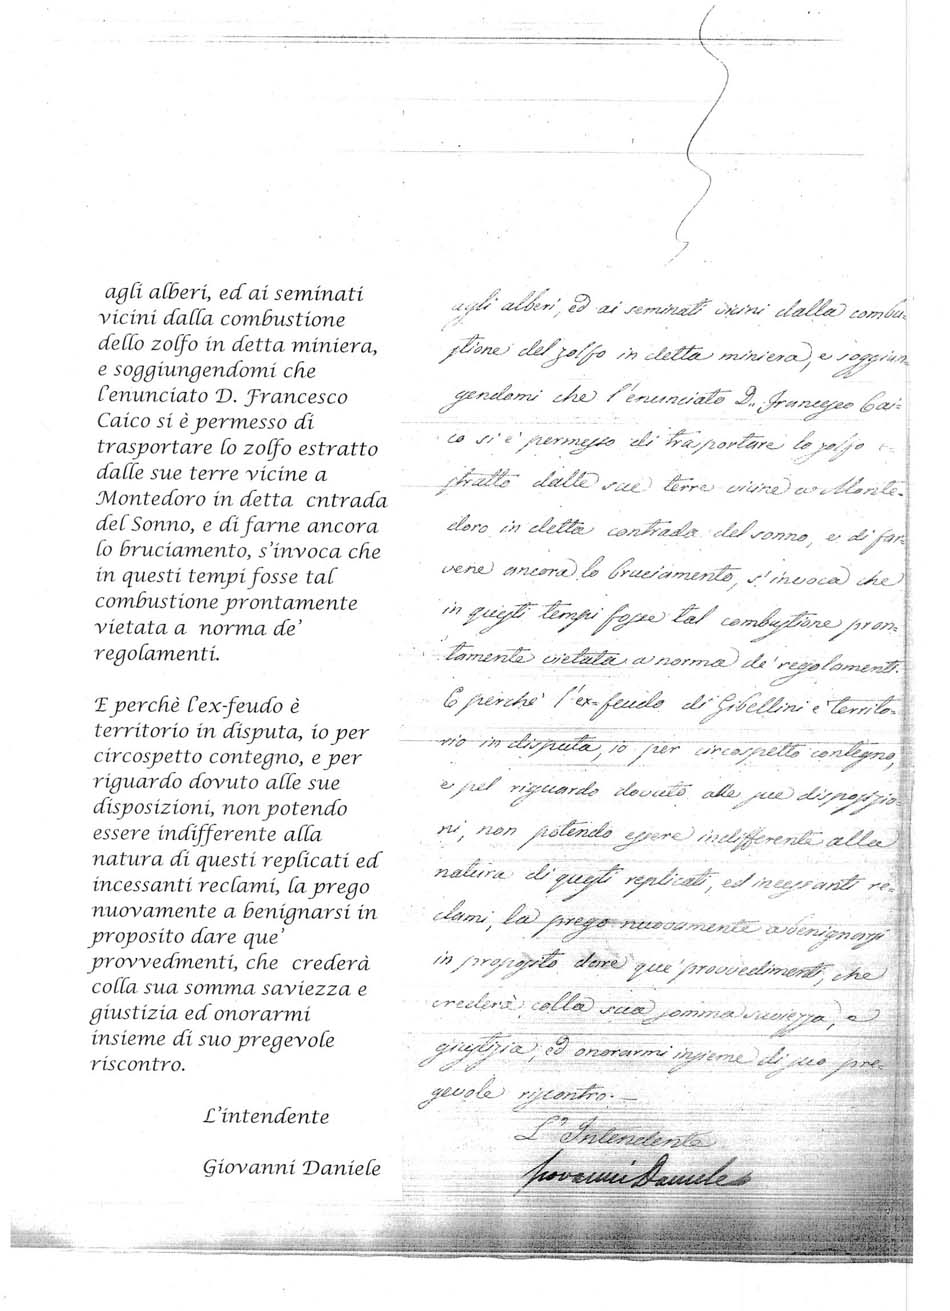 agli alberi, ed ai seminati
vicini dalla combustione
dello zolfo in detta miniera,
e soggiungendomi che
l'enunciato D. Francesco
Caico si è permesso di
trasportare lo zolfo estratto
dalle sue terre vicine a
Montedoro in detta cntrada
del Sonno, e di farne ancora
lo bruciamento, s'invoca che
in questi tempi fosse tal
combustione prontamente
vietata a norma de'
regolamenti.
E perchè l'ex-feudo è
territorio in disputa, io per
circospetto contegno, e per
riguardo dovuto alle sue
disposizioni, non potendo
essere indifferente alla
natura di questi replicati ed
incessanti reclami, la prego
nuovamente a benignarsi in
proposito dare que'
provvedmenti, che crederà
colla sua somma saviezza e
giustizia ed onorarmi
insieme di suo pregevole
riscontro.
L'intendente
Giovanni Daniele
agli alberi, ed ai seminati vicini dalla combu=
stione del zolfo in detta miniera, e soggiun
gendomi che l'enunciato D. Francesco Cai=
co si è permesso di trasportare lo zolfo e=
stratto dalle sue terre vicine a Monte=
doro in detta contrada del sonno, e di far=
vene ancora lo bruciamento, s'invoca che
in questi tempi fosse tal combustione pron=
tamente vietata a norma de' regolamenti.
E perchè l'ex=feudo di Gibellini è territo=
rio in disputa, io per circospetto contegno,
e pel riguardo dovuto alle sue disposizio=
ni, non potendo essere indifferente alla
natura di questi replicati, ed incessanti re=
clami, la prego nuovamente a benignarsi
in proposito dare que' provvedimenti, che
crederà colla sua somma saviezza, e
giustizia, ed onorarmi insieme di suo pre=
gevole riscontro. —
L'Intendente
Giovanni Daniele